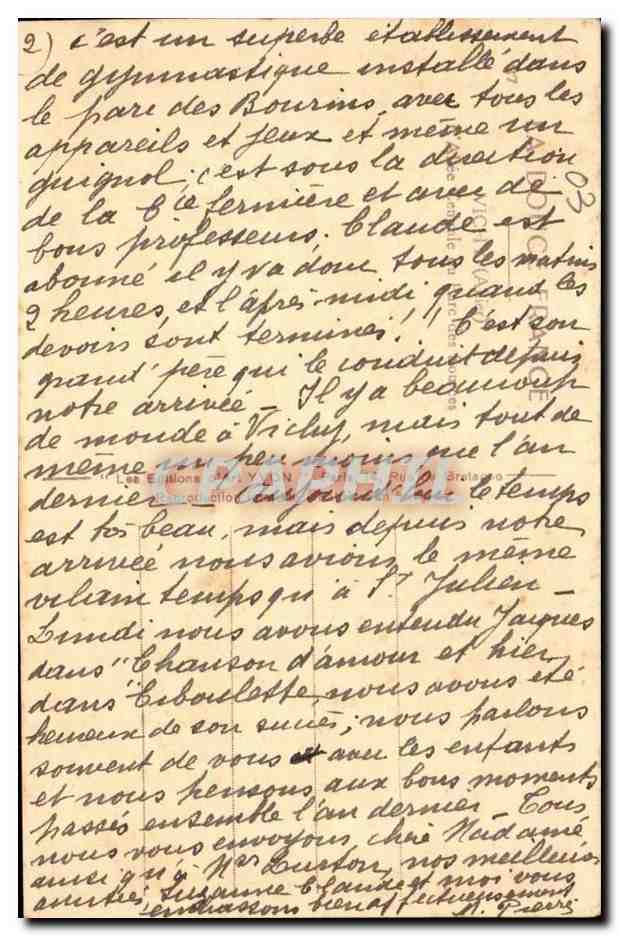 2) c'est un superbe établissement
de gymnastique installé dans
le parc des Bourins, avec tous les
appareils et jeux et même un
guignol; c'est sous la direction
de la Cie fermière et avec de
bons professeurs. Claude est
abonné il y va donc tous les matins
2 heures, et l'après-midi quand les
devoirs sont terminés!! C'est son
grand' père qui le conduit depuis
notre arrivée _ Il y a beaucoup
de monde à Vichy, mais tout de
même un peu moins que l'an
dernier _ Aujourd'hui le temps
est très beau, mais depuis notre
arrivée nous avions le même
vilain temps qu'à St Julien _
Lundi nous avons entendu Jacques
dans "Chanson d'amour et hier
dans "Ciboulette, nous avons été
heureux de son succès; nous parlons
souvent de vous avec les enfants
et nous pensons aux bons moments
passés ensemble l'an dernier _ Tous
nous vous envoyons chère Madame
ainsi qu'à Mr nos meilleures
amitiés, Suzanne Claude et moi vous
embrassons bien affectueusement
Pierre
03
A DOUCE FRANCE
VICHY
CPAPHIL